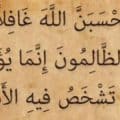 حْسَبَنَّ اللَّهَ غَافِلً
الظَّالِمُونَ إِنَّمَا يُؤَ
تَشْخَصُ فِيهِ الْأَ